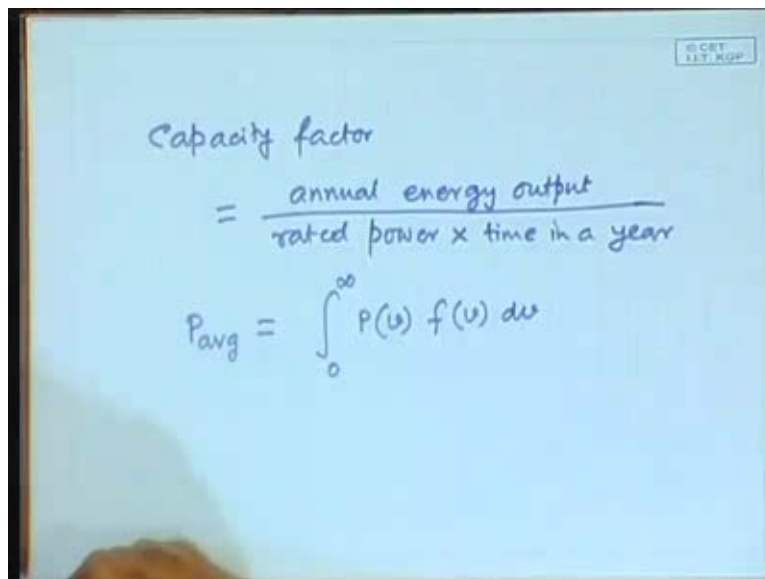 © CET
I.I.T. KGP
Capacity factor
= annual energy output
rated power x time in a year
Pavg = ∫₀^∞ P(v) f(v) dv